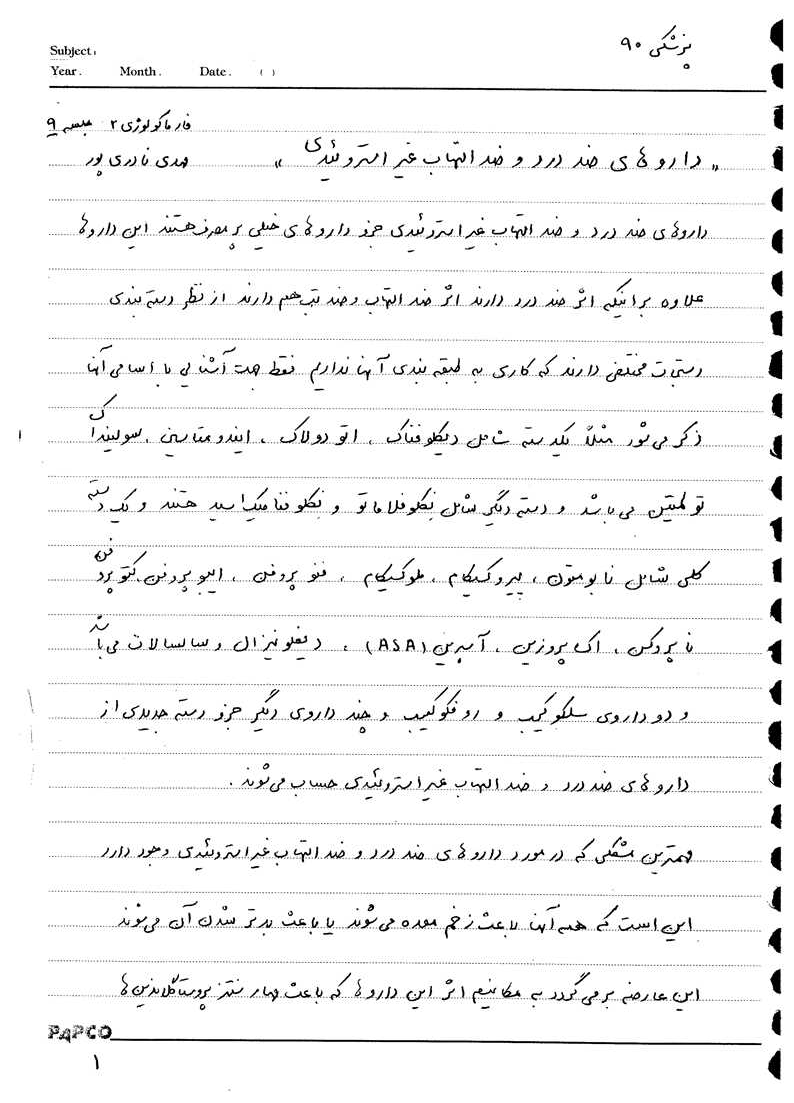 پزشکی ۹۰
Subject:
Year. Month. Date. ( )
فارماکولوژی ۲ جلسه ۹
« داروهای ضد درد و ضد التهاب غیر استروئیدی » مهدی نادری پور
داروهای ضد درد و ضد التهاب غیر استروئیدی جزو داروهای خیلی پر مصرف هستند این داروها
علاوه بر اینکه اثر ضد درد دارند اثر ضد التهاب و ضد تب هم دارند از نظر دسته بندی
دستجات مختلفی دارند که کاری به طبقه بندی آنها نداریم فقط جهت آشنایی با اسامی آنها
ذکر می شود مثلاً یکدسته شامل دیکلوفناک ، اتودولاک ، ایندومتاسین ، سولینداک
تولمتین می باشد و دسته دیگر شامل نکلوفلاماتو و نکلوفنامیک اسید هستند و یک دسته
کلی شامل نابومتون ، پیروکسیکام ، ملوکسیکام ، فنوپروفن ، ایبوپروفن کتوپروفن
ناپروکسن ، اکساپروزین ، آسپرین (ASA) ، دیفلونیزال و سالسالات می باشد
و دو داروی سلکوکسیب و روفکوکسیب و چند داروی دیگر جزو دسته جدیدی از
داروهای ضد درد و ضد التهاب غیر استروئیدی حساب می شوند .
مهمترین مشکلی که در مورد داروهای ضد درد و ضد التهاب غیر استروئیدی وجود دارد
این است که همه آنها باعث زخم معده می شوند یا باعث بدتر شدن آن می شوند
این عارضه بر می گردد به مکانیسم اثر این داروها که باعث مهار سنتز پروستاگلاندین ها
PAPCO
۱